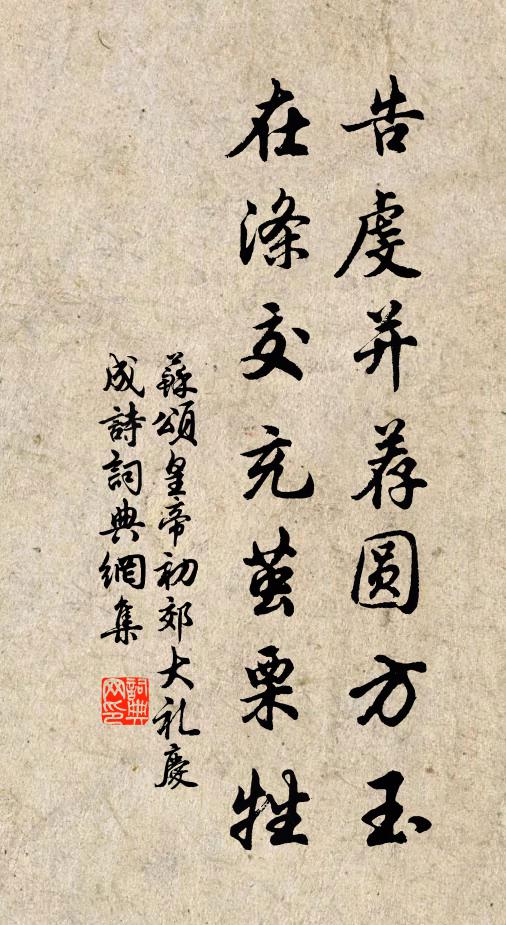 告虔并荐圆方玉
在涤交充茧栗牲
蘇頌皇帝初郊大礼慶
成詩詞典網集
詞典
网印